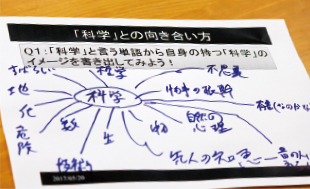 「科学」との向き合い方
Q1:「科学」と言う単語から自身の持つ「科学」の
イメージを書き出してみよう!
すばらしい
哲学
不思議
地
科学
物事の根幹
化
自然の
心理
危険
数
生
物
先人の知恵
2017/05/20